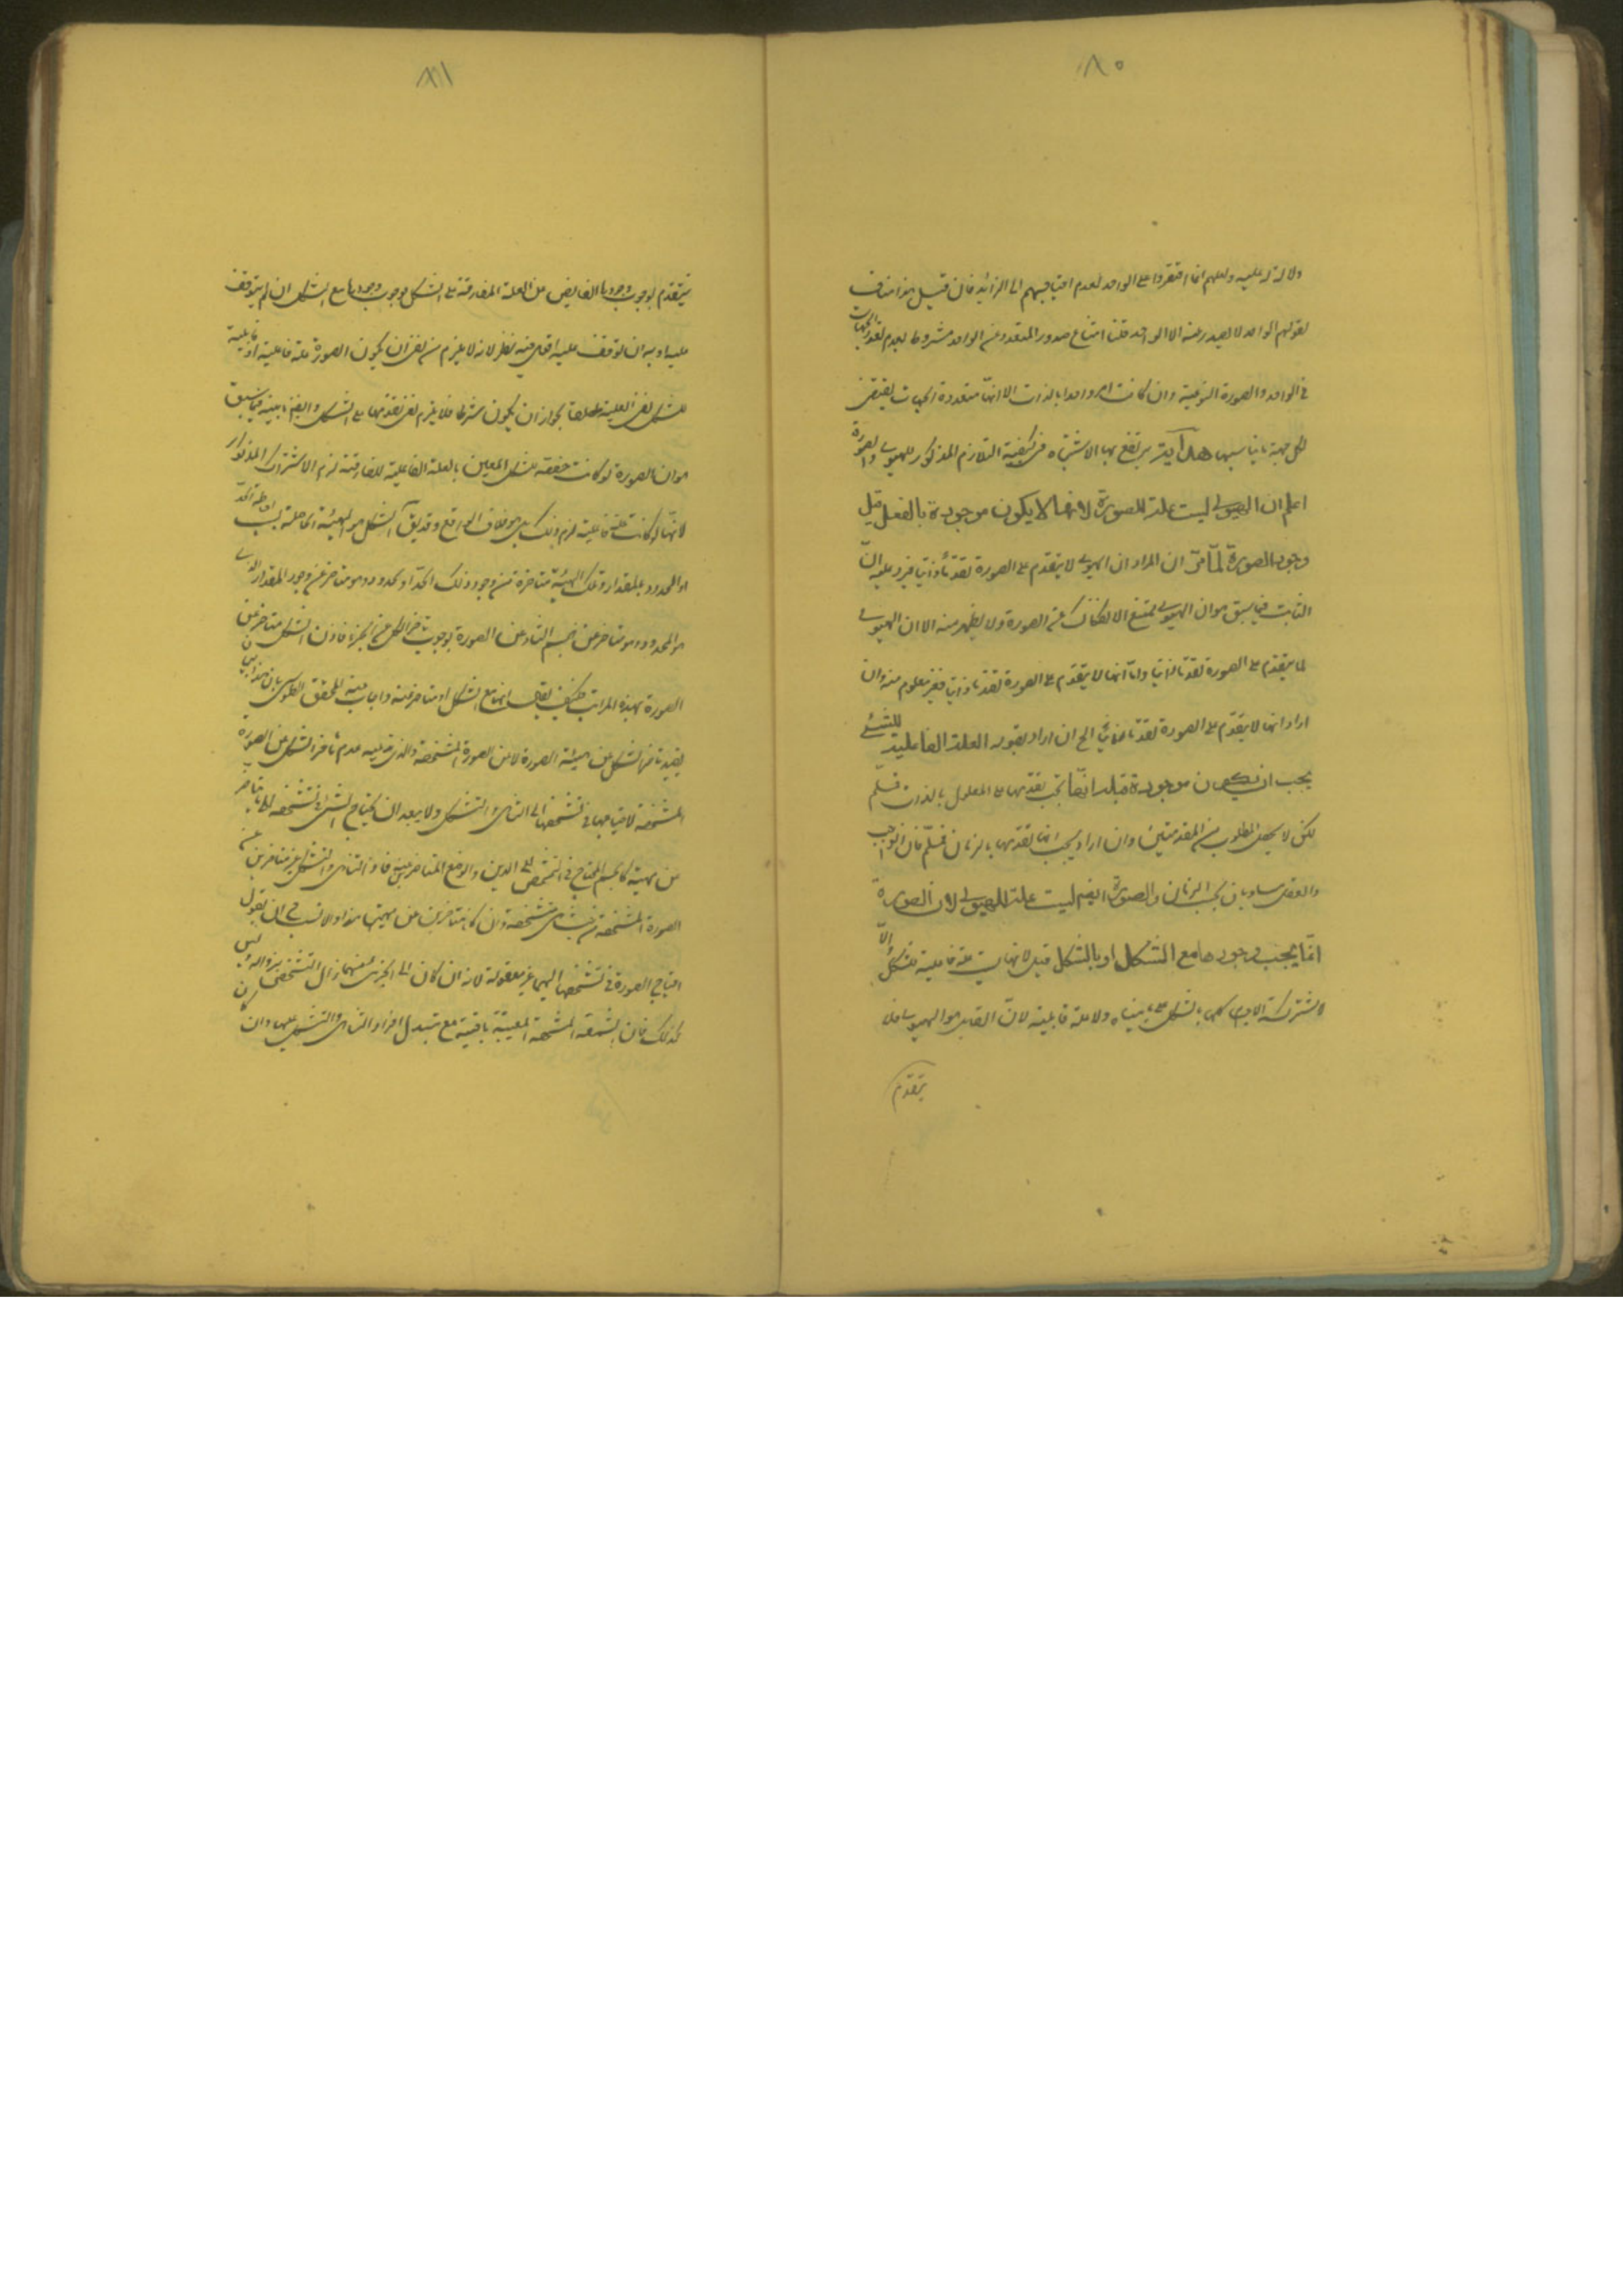 ٨٠
ولا دلالة له عليه ولعلهم انما اقتصروا على الواحد لعدم احتياجهم الى الزائد فان قيل هذا مناف
لقولهم الواحد لا يصدر عنه الا الواحد قلنا امتناع صدور المتعدد عن الواحد مشروط بعدم تعدد الجهات
في الواحد والصورة النوعية وان كانت امرا واحدا بالذات الا انها متعددة الجهات يقتضى
لكل جهة ما يناسبها هداية يرتفع بها الاشتباه في كيفية التلازم المذكور للهيولى والصورة
اعلم ان الهيولى ليست علة للصورة لانها لا يكون موجودة بالفعل قبل
وجود الصورة لما مر ان المراد ان الهيولى لا يتقدم على الصورة تقدما ذاتيا فيرد عليه ان
الثابت فيما سبق هو ان الهيولى يمتنع الانفكاك عن الصورة ولا يظهر منه الا ان الهيولى
لا يتقدم على الصورة تقدما زمانيا واما انها لا يتقدم على الصورة تقدما ذاتيا فغير معلوم منه وان
اراد انها لا يتقدم على الصورة تقدما زمانيا الخ ان اراد بقوله العلة الفاعلية للشئ
يجب ان يكون موجودة قبله انها يجب تقدمها على المعلول بالذات فمسلم
لكن لا يحصل المطلوب من المقدمتين وان اراد يجب انها تقدمها بالزمان فمسلم فان الواجب
والعقل متساويان بحسب الزمان والصورة ايضا ليست علة للهيولى لان الصورة
انما يجب وجودها مع الشكل او بالشكل قيل لانها ليست علة فاعلية للشكل والا
لاشتركت الاجسام كلها بالشكل على ما بيناه ولا علة قابلية لان القابل هو الهيولى فلا
يتقدم
٨١
يتقدم لوجوب وجودها الفايض عن العلة المفارقة على الشكل فوجوب وجودها مع الشكل ان لم يتوقف
عليه او به ان توقف عليه اقول فيه نظر لانه لا يلزم من نفى ان يكون الصورة علة فاعلية او قابلية
للشكل نفى العلية مطلقا لجواز ان يكون شرطا فلا يلزم نفى تقدمها على الشكل وايضا ما بينه فيما سبق
هو ان الصورة لو كانت مخصصة للشكل المعين بالعلة الفاعلية المفارقة لزم الاشتراك المذكور
لانها لو كانت علة فاعلية لزم ذلك بل هو خلاف الواقع وقد يقال الشكل هو الهيئة الحاصلة بسبب احاطة الحد
او الحدود بالمقدار وتلك الهيئة متاخرة عن وجود ذلك الحد او الحدود وهو متاخر عن وجود المقدار الذى
هو المحدود وهو متاخر عن الجسم المتاخر عن الصورة لوجوب تاخر الكل عن الجزء فاذن الشكل متاخر عن
الصورة بهذه المراتب فكيف يقال انها مع الشكل او متاخر عنه واجاب عنه المحقق الطوسى بان هذا البيان
يفيد تاخر الشكل عن ماهية الصورة لا عن الصورة المشخصة والذى ندعيه عدم تاخر الشكل عن الصورة
المشخصة لاحتياجها في تشخصها الى التناهى والتشكل ولا يبعد ان يحتاج الشئ في تشخصه الى ما يتاخر
عن مهيته كالجسم المحتاج في التشخص الى الاين والوضع المتاخرين عنه فاذن التناهى والتشكل غير متاخرين عن
الصورة المشخصة من حيث هى مشخصة وان كانا متاخرين عن مهيتها هذا والانسب في ان يقول
احتياج الصورة في تشخصها اليهما غير معقولة لانه ان كان الى الجزئى منهما زال التشخص بزواله وليس
كذلك فان الشمعة المشخصة المعينة باقية مع تبدل افراد التناهى والتشكل عليها وان كان